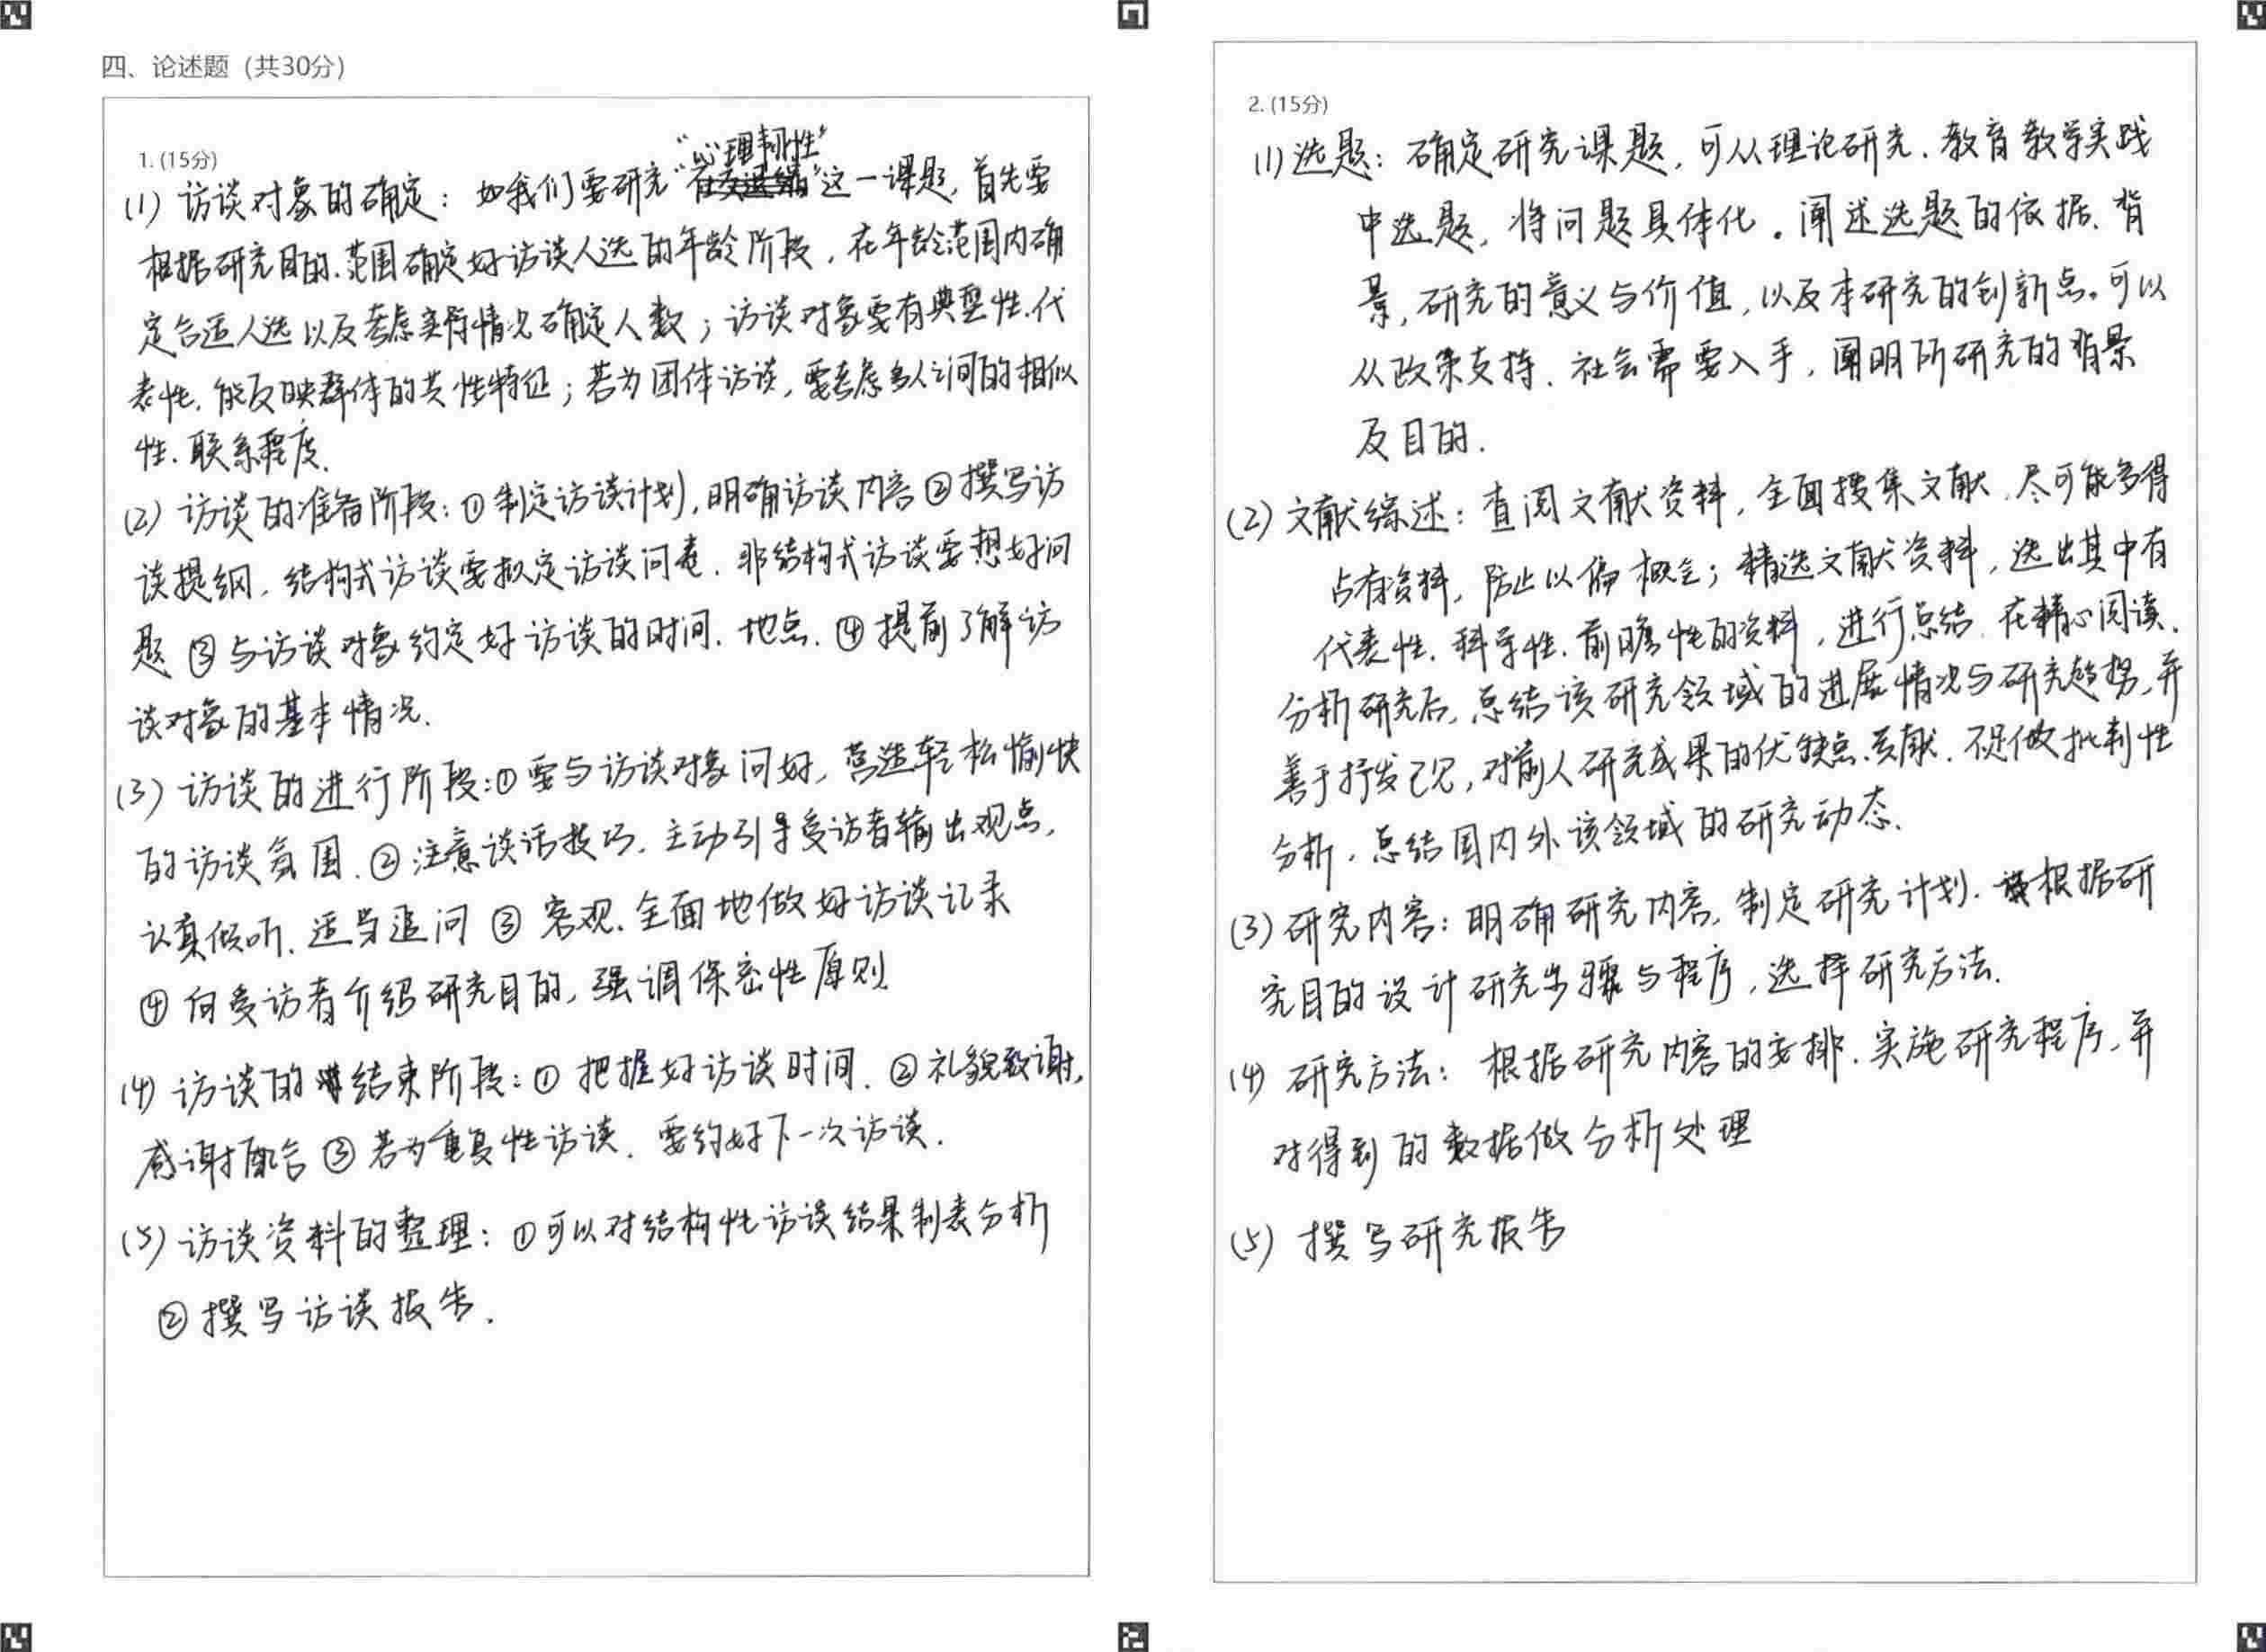 四、论述题（共30分）
1. (15分)
“心理韧性”
(1) 访谈对象的确定：如我们要研究“ ”这一课题，首先要
根据研究目的、范围确定好访谈人选的年龄阶段，在年龄范围内确
定合适人选以及考虑实际情况确定人数；访谈对象要有典型性、代
表性，能反映群体的共性特征；若为团体访谈，要考虑多人之间的相似
性、联系程度.
(2) 访谈的准备阶段：①制定访谈计划，明确访谈内容②撰写访
谈提纲，结构式访谈要拟定访谈问卷，非结构式访谈要想好问
题 ③与访谈对象约定好访谈的时间、地点. ④提前了解访
谈对象的基本情况.
(3) 访谈的进行阶段：①要与访谈对象问好，营造轻松愉快
的访谈氛围. ②注意谈话技巧，主动引导受访者输出观点，
认真倾听、适当追问 ③ 客观、全面地做好访谈记录
④ 向受访者介绍研究目的，强调保密性原则
(4) 访谈的结束阶段：① 把握好访谈时间. ②礼貌致谢，
感谢配合 ③若为重复性访谈，要约好下一次访谈.
(5) 访谈资料的整理：①可以对结构性访谈结果制表分析
②撰写访谈报告.
2. (15分)
(1) 选题：确定研究课题，可从理论研究、教育教学实践
中选题，将问题具体化。阐述选题的依据、背
景，研究的意义与价值，以及本研究的创新点。可以
从政策支持、社会需要入手，阐明所研究的背景
及目的.
(2) 文献综述：查阅文献资料，全面搜集文献，尽可能多得
占有资料，防止以偏概全；精选文献资料，选出其中有
代表性、科学性、前瞻性的资料，进行总结，在精心阅读、
分析研究后，总结该研究领域的进展情况与研究趋势，并
善于抒发己见，对前人研究成果的优缺点、贡献、不足做批判性
分析，总结国内外该领域的研究动态.
(3) 研究内容：明确研究内容，制定研究计划. 根据研
究目的设计研究步骤与程序，选择研究方法.
(4) 研究方法：根据研究内容的安排，实施研究程序，并
对得到的数据做分析处理
(5) 撰写研究报告